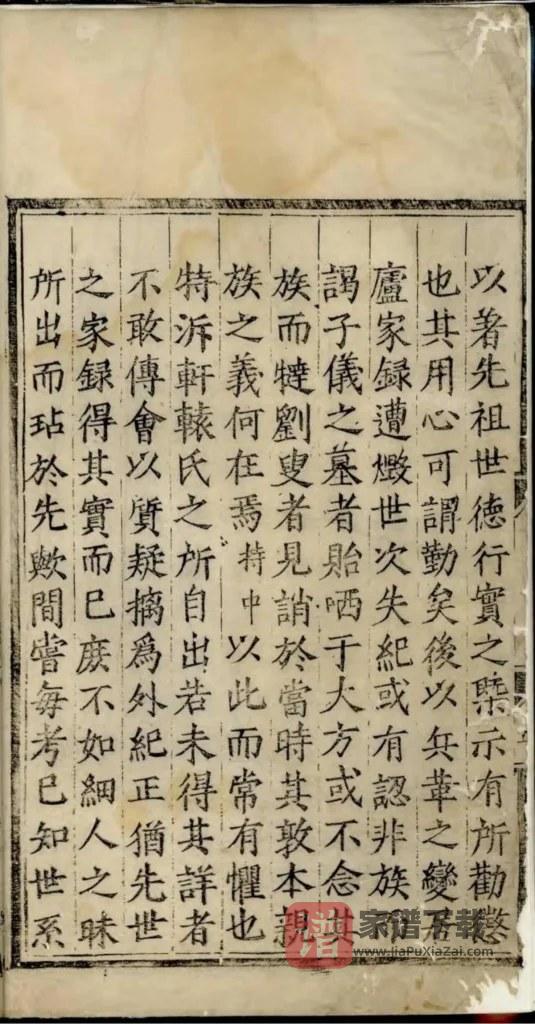 以著先祖世德行實之槩示有所勸懲
也其用心可謂勤矣後以兵革之變
廬家録遭燬世次失紀或有認非族
謁子儀之墓者貽哂于大方或不念其
族而撻劉叟者見誚於當時其敦本親
族之義何在焉持中以此而常有懼也
特泝軒轅氏之所自出若未得其詳者
不敢傳會以質疑摛爲外紀正猶先世
之家録得其實而已庶不如綱人之昧
所出而玷於先歟間嘗每考已知世系
譜 家谱下载
www.jiaPuXiaZai.com